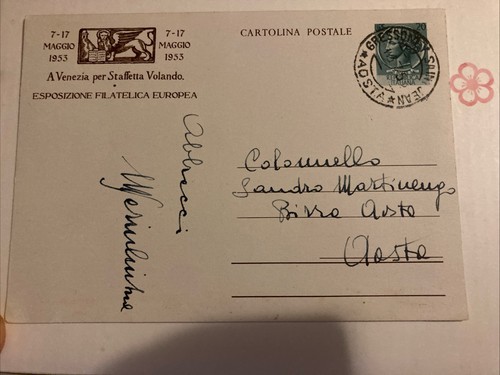 7-17
MAGGIO
1953
7-17
MAGGIO
1953
A Venezia per Staffetta Volando.
ESPOSIZIONE FILATELICA EUROPEA
CARTOLINA POSTALE
20
GRESSONEY SAINT JEAN
* AOSTA *
Abbracci
Colonnello
Sandro Martinengo
Birra Aosta
Aosta